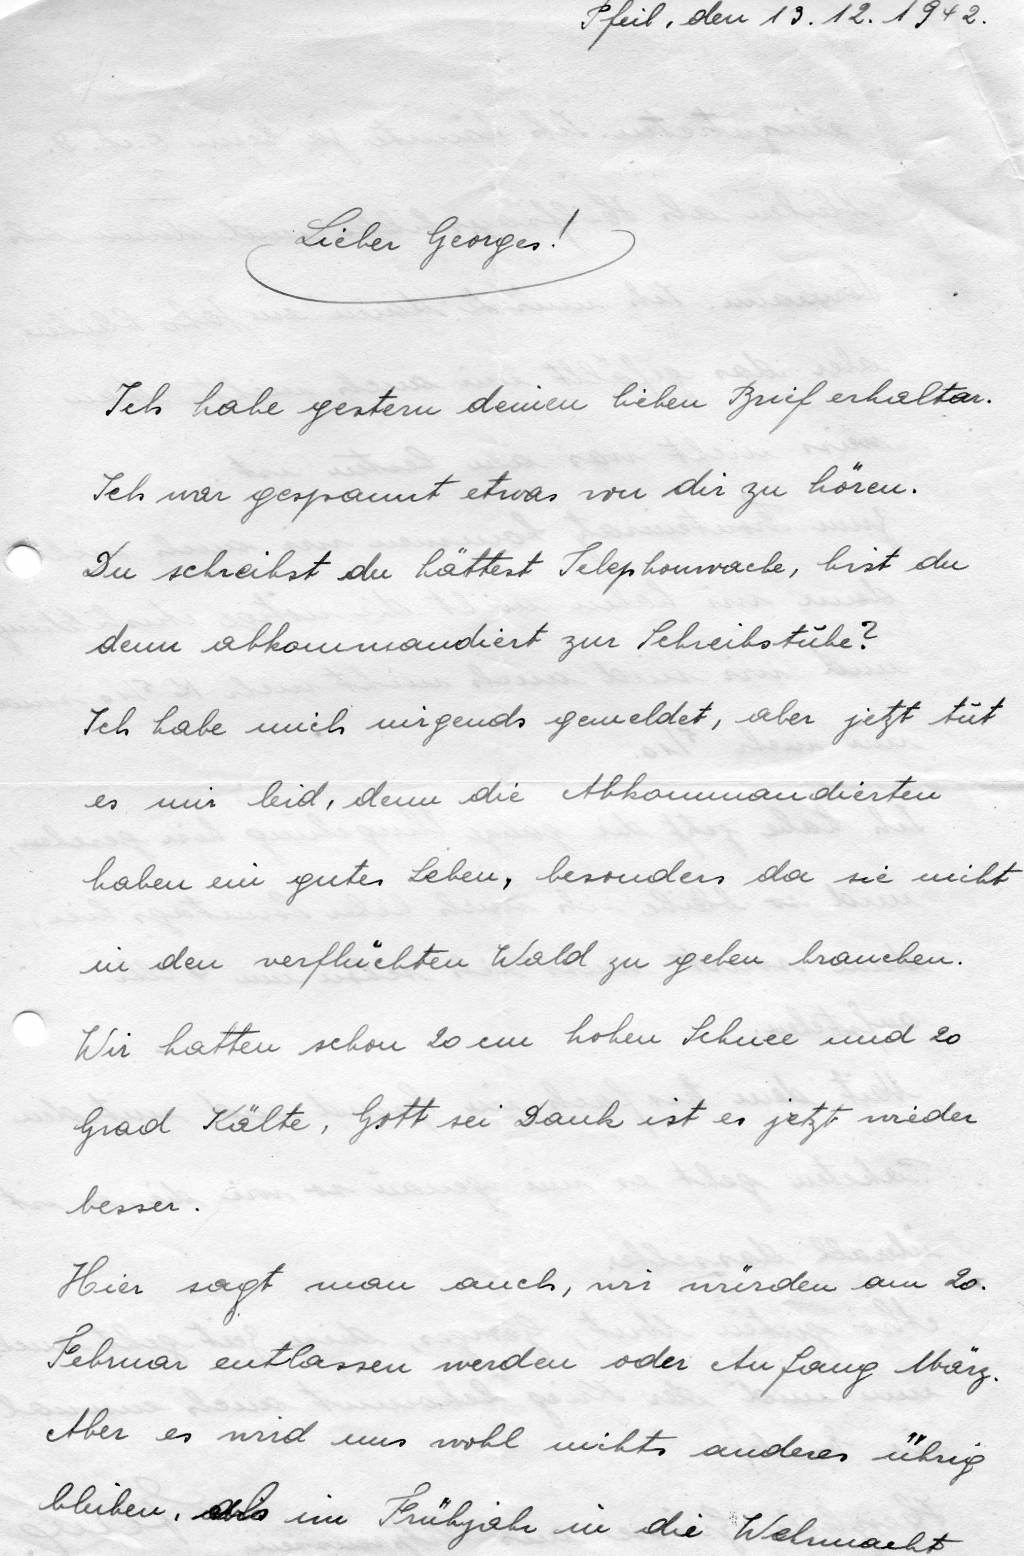 Pfeil, den 13.12.1942.
Lieber Georges!
Ich habe gestern deinen lieben Brief erhalten.
Ich war gespannt etwas von dir zu hören.
Du schreibst du hättest Telephonwache, bist du
denn abkommandiert zur Schreibstŭbe?
Ich habe mich nirgends gemeldet, aber jetzt tŭt
es mir leid, denn die Abkommandierten
haben ein gutes Leben, besonders da sie nicht
in den verflŭchten Wald zu gehen brauchen.
Wir hatten schon 20 cm hohen Schnee und 20
Grad Kälte, Gott sei Dank ist es jetzt wieder
besser.
Hier sagt man auch, wir würden am 20.
Februar entlassen werden oder Anfang März.
Aber es wird uns wohl nichts anderes übrig
bleiben, als im Frühjahr in die Wehrmacht